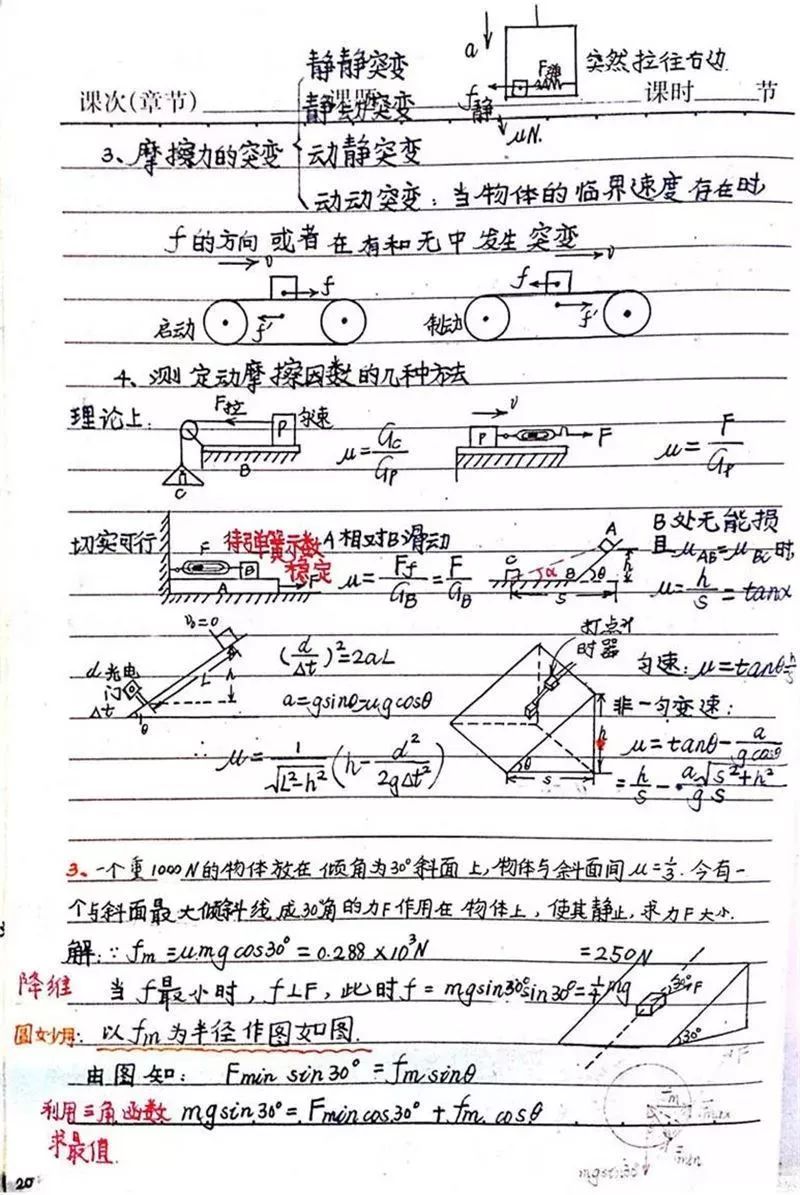 静静突变
a
F弹
突然拉住右边
课次(章节) 静动突变 f静 课时 节
μN.
3、摩擦力的突变 动静突变
动动突变：当物体的临界速度存在时,
f的方向或者在有和无中发生突变
v v
f f
启动 f′ 制动 f′
4、测定动摩擦因数的几种方法
理论上: F拉 P 匀速 B C μ=Gc/Gp v P F μ=F/Gp
切实可行 F 待弹簧示数稳定 B A F A相对B滑动 μ=Ff/GB=F/GB C α B θ A h s B处无能损且μAB=μBC时, μ=h/s=tanα
v₀=0 d 光电门 Δt L h θ (d/Δt)²=2aL 打点计时器 匀速: μ=tanθ=h/s
a=gsinθ-μgcosθ 非一匀变速:
∴ μ=1/√(L²-h²) (h-d²/(2gΔt²)) θ s h μ=tanθ-a/(gcosθ)
=h/s-a/g √(s²+h²)/s
3、一个重1000N的物体放在倾角为30°斜面上,物体与斜面间μ=1/3.今有一
个与斜面最大倾斜线成30角的力F作用在物体上,使其静止,求力F大小.
解:∵fm=μmgcos30°=0.288×10³N =250N
降维 当f最小时,f⊥F,此时f=mgsin30°sin30°=1/4mg
30° F
30°
圆妙用: 以fm为半径作图如图.
由图知: Fmin sin30°=fmsinθ
利用三角函数 mgsin30°=Fmincos30°+fm.cosθ
求最值.
mgsin30°
20